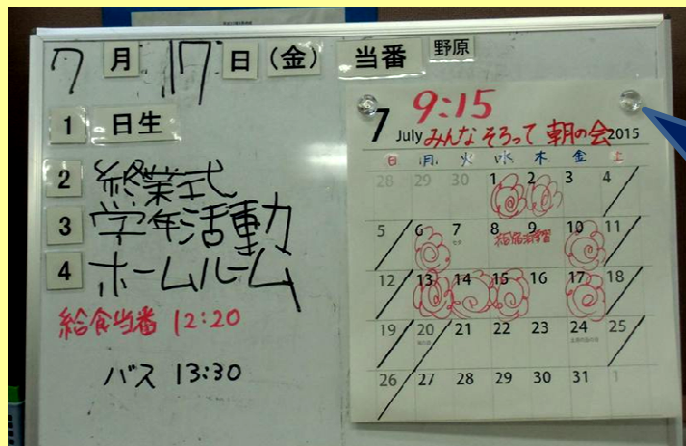 7月17日(金) 当番 野原
1 日生
2 終業式
3 学年活動
4 ホームルーム
給食当番 12:20
バス 13:30
9:15
みんなそろって 朝の会
7 July 2015
日 月 火 水 木 金 土
28 29 30 1 2 3 4
5 6 7 8 9 10 11
12 13 14 15 16 17 18
19 20 21 22 23 24 25
26 27 28 29 30 31 1